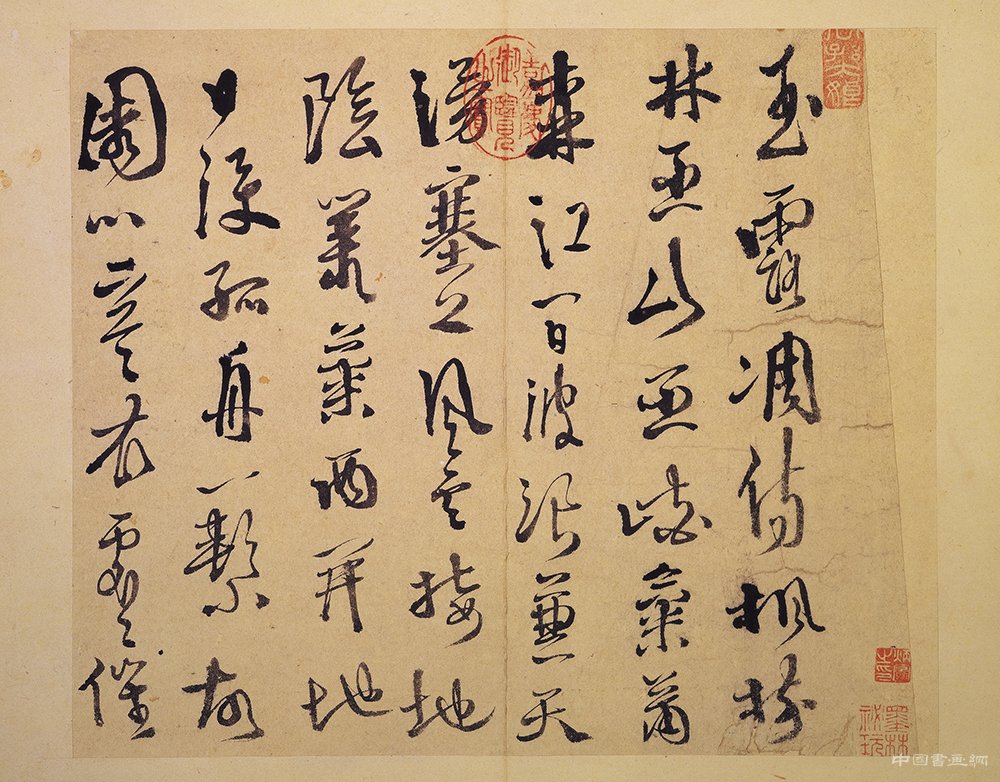 玉露凋傷楓樹
林巫山巫峽氣蕭
森江間波浪兼天
湧塞上風雲接地
陰叢菊兩開他
日淚孤舟一繫故
園心寒衣處々催
嘉慶御覽之寶
墨林祕玩
中國書畫網